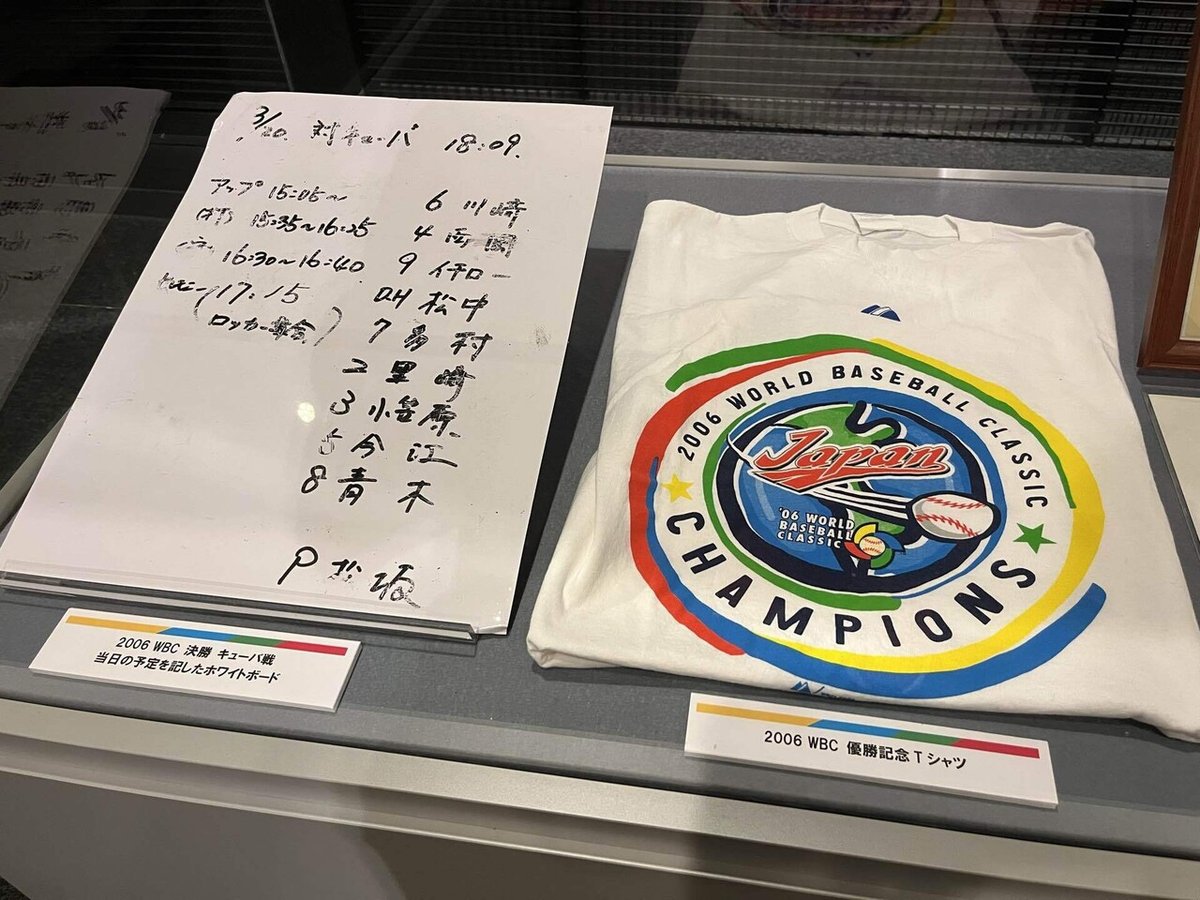 3/20. 対キューバ 18:09.
アップ 15:05〜
(打) 15:35〜16:25
16:30〜16:40
セレモニー 17:15
(ロッカー集合)
6 川﨑
4 西岡
9 イチロー
DH 松中
7 多村
2 里崎
3 小笠原
5 今江
8 青木
P 松坂
2006 WBC 決勝 キューバ戦
当日の予定を記したホワイトボード
2006 WORLD BASEBALL CLASSIC
Japan
'06 WORLD
BASEBALL
CLASSIC
CHAMPIONS
2006 WBC 優勝記念Tシャツ